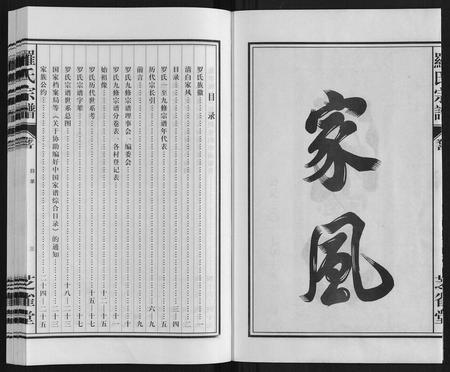 羅氏宗譜
家風
芝省堂
目录
罗氏族徽……一
清白家风……二
目录……三–四
罗氏一至九修宗谱年代表……五
历代宗长引……六–九
前言……九
罗氏九修宗谱理事会、编委会……十
罗氏九修宗谱分卷表、各村登记表……十一
始祖像……十二–十五
罗氏历代世系考……十五
罗氏宗谱字辈……十七
罗氏宗谱世系总图……十八–二十
国家档案局等《关于协助编好中国家谱综合目录》的通知……二十三
家族公约……二十四–二十五
羅氏宗譜
目录
芝省堂